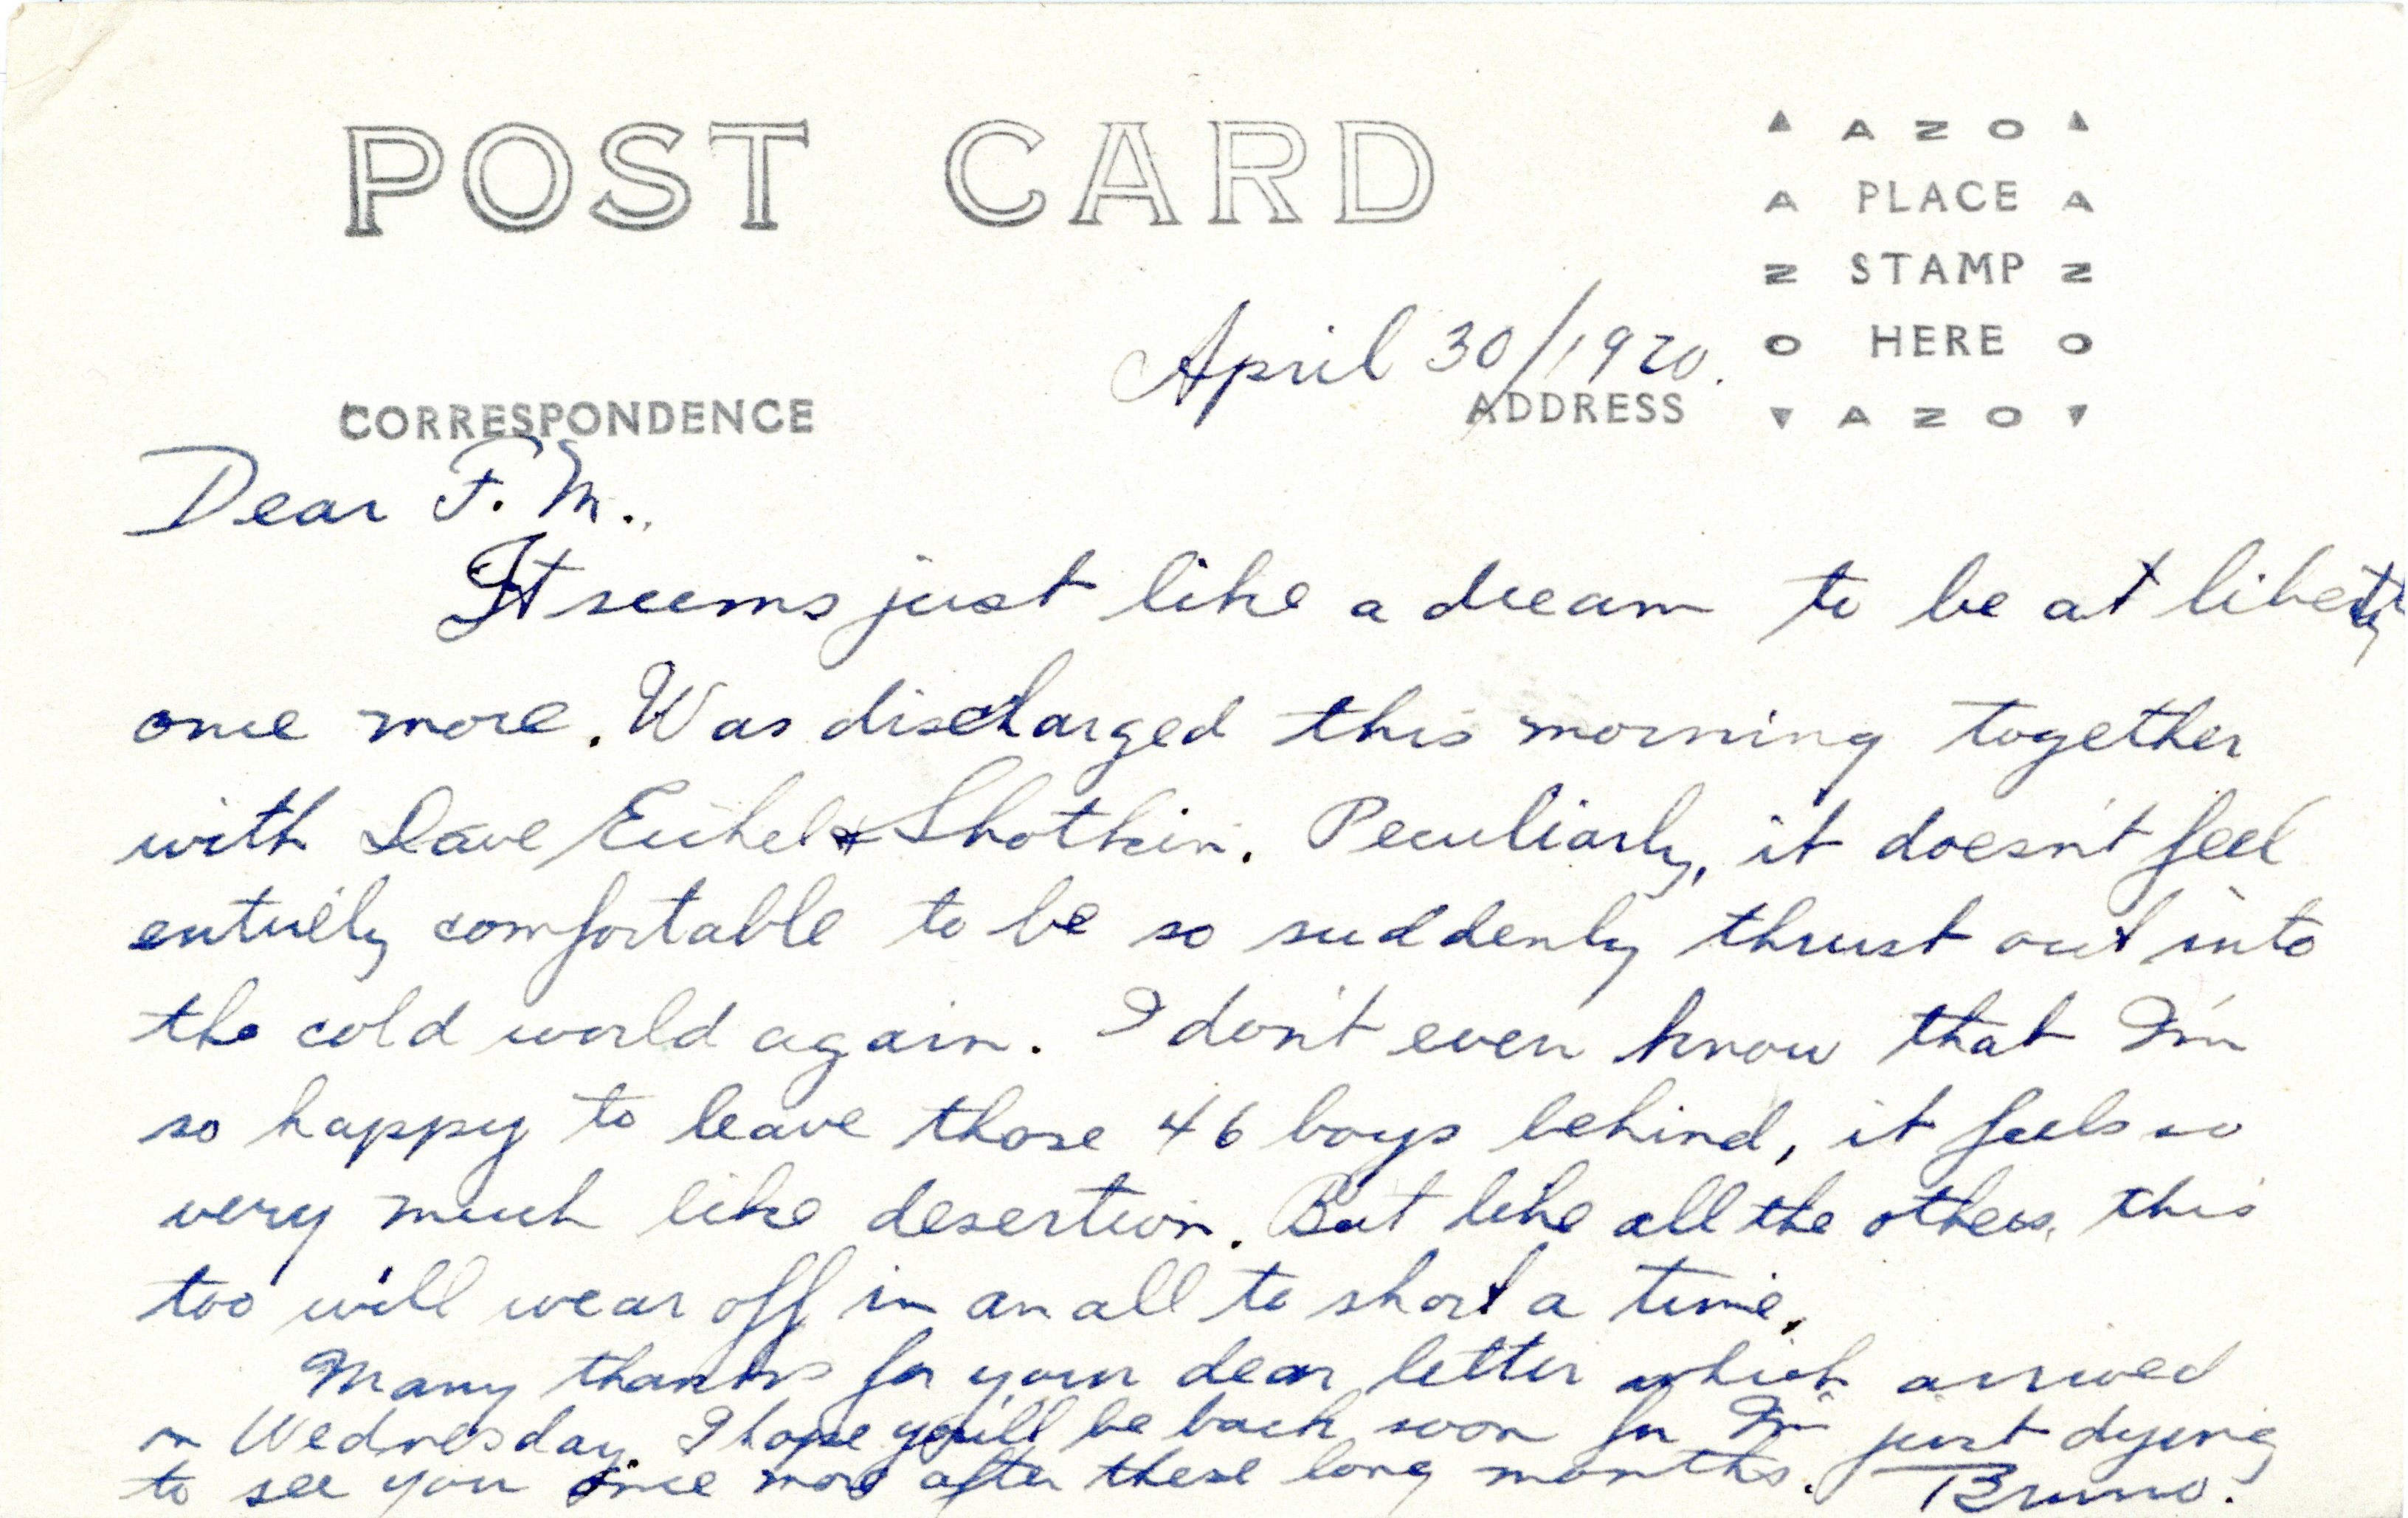 POST CARD
▲ A Z O ▲
A PLACE A
Z STAMP Z
O HERE O
▼ A Z O ▼
April 30/1920.
CORRESPONDENCE
ADDRESS
Dear F. M.,
It seems just like a dream to be at liberty
once more. Was discharged this morning together
with Dave Eichel & Shotkin. Peculiarly, it doesn't feel
entirely comfortable to be so suddenly thrust out into
the cold world again. I don't even know that I'm
so happy to leave those 46 boys behind, it feels so
very much like desertion. But like all the others, this
too will wear off in an all to short a time.
Many thanks for your dear letter which arrived
on Wednesday. I hope you'll be back soon for I'm just dying
to see you once more after these long months. Bruno.